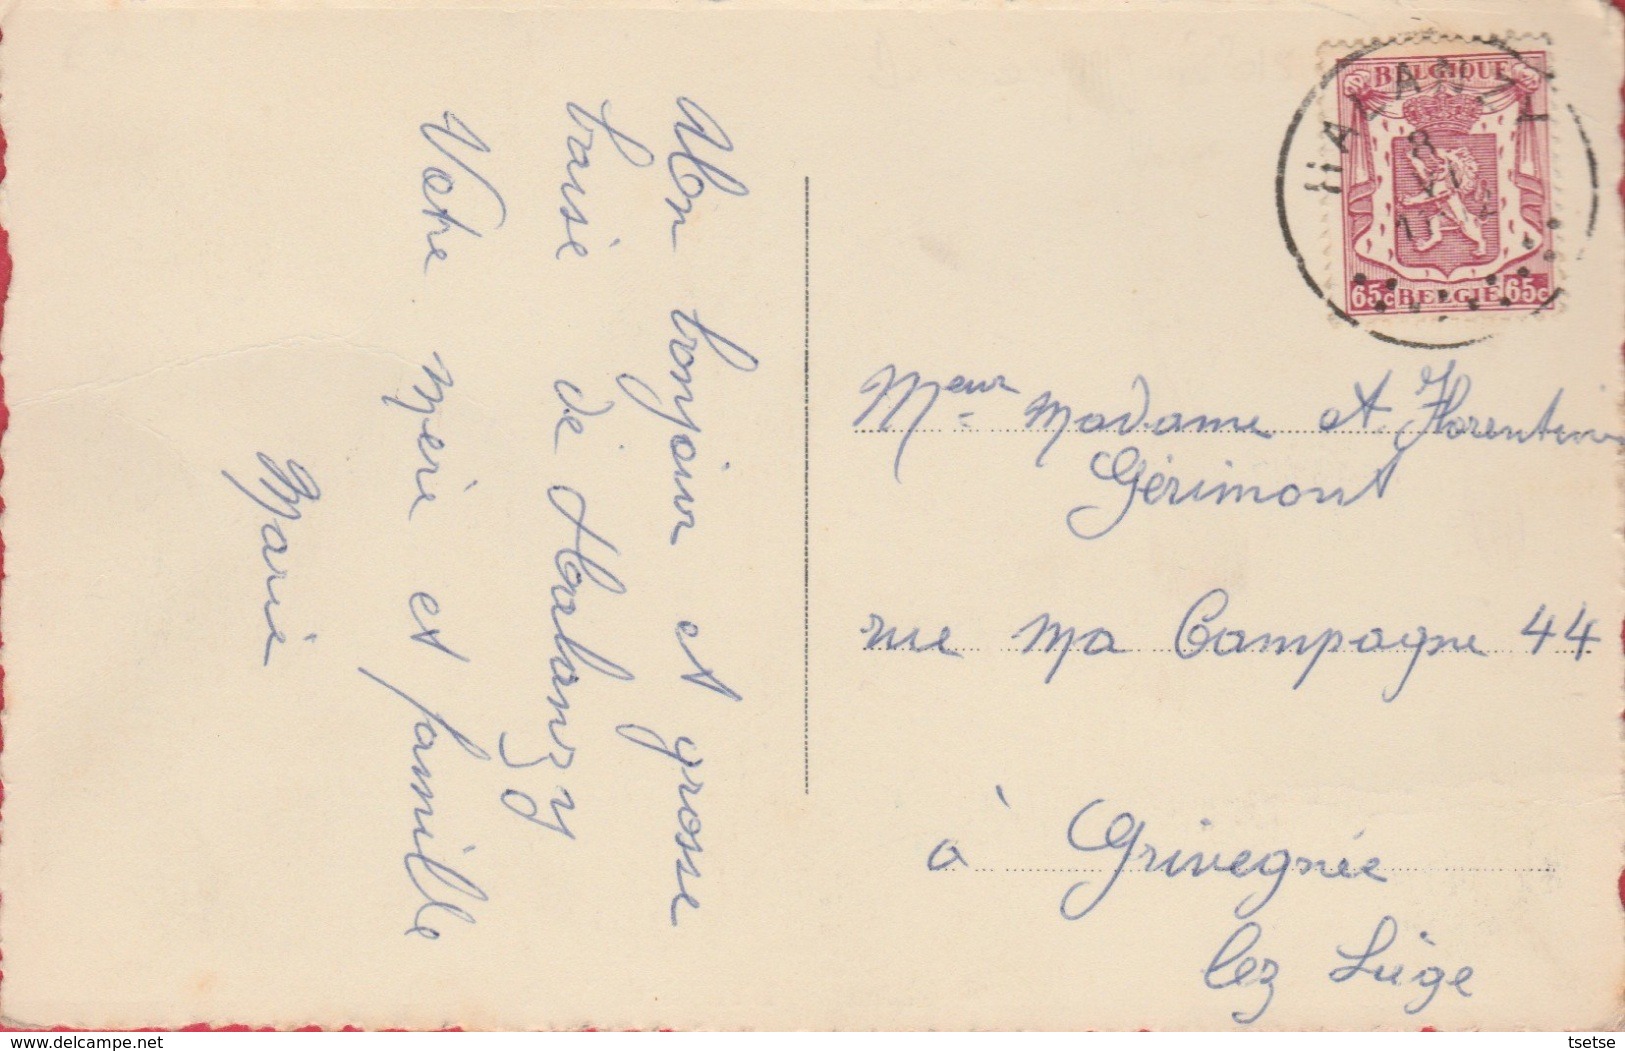 Mon bonjour et grosse
baise de Halanzy
Votre mère et famille
Marie
HALANZY
8
VI
BELGIQUE
65c BELGIE 65c
Meur Madame et Florentine
Gérimont
rue Ma Campagne 44
à Grivegnée
lez Liège
www.delcampe.net
tsetse